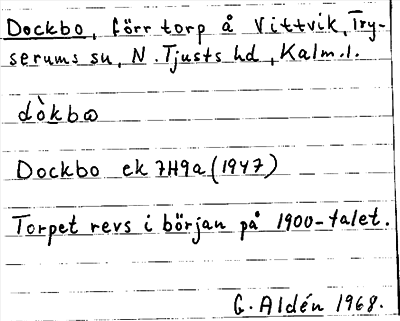 Dockbo, förr torp å Vittvik, Try-
serums sn, N. Tjusts hd, Kalm. l.
dòkbω
Dockbo ek 7H9a (1947)
Torpet revs i början på 1900-talet.
G. Aldén 1968.